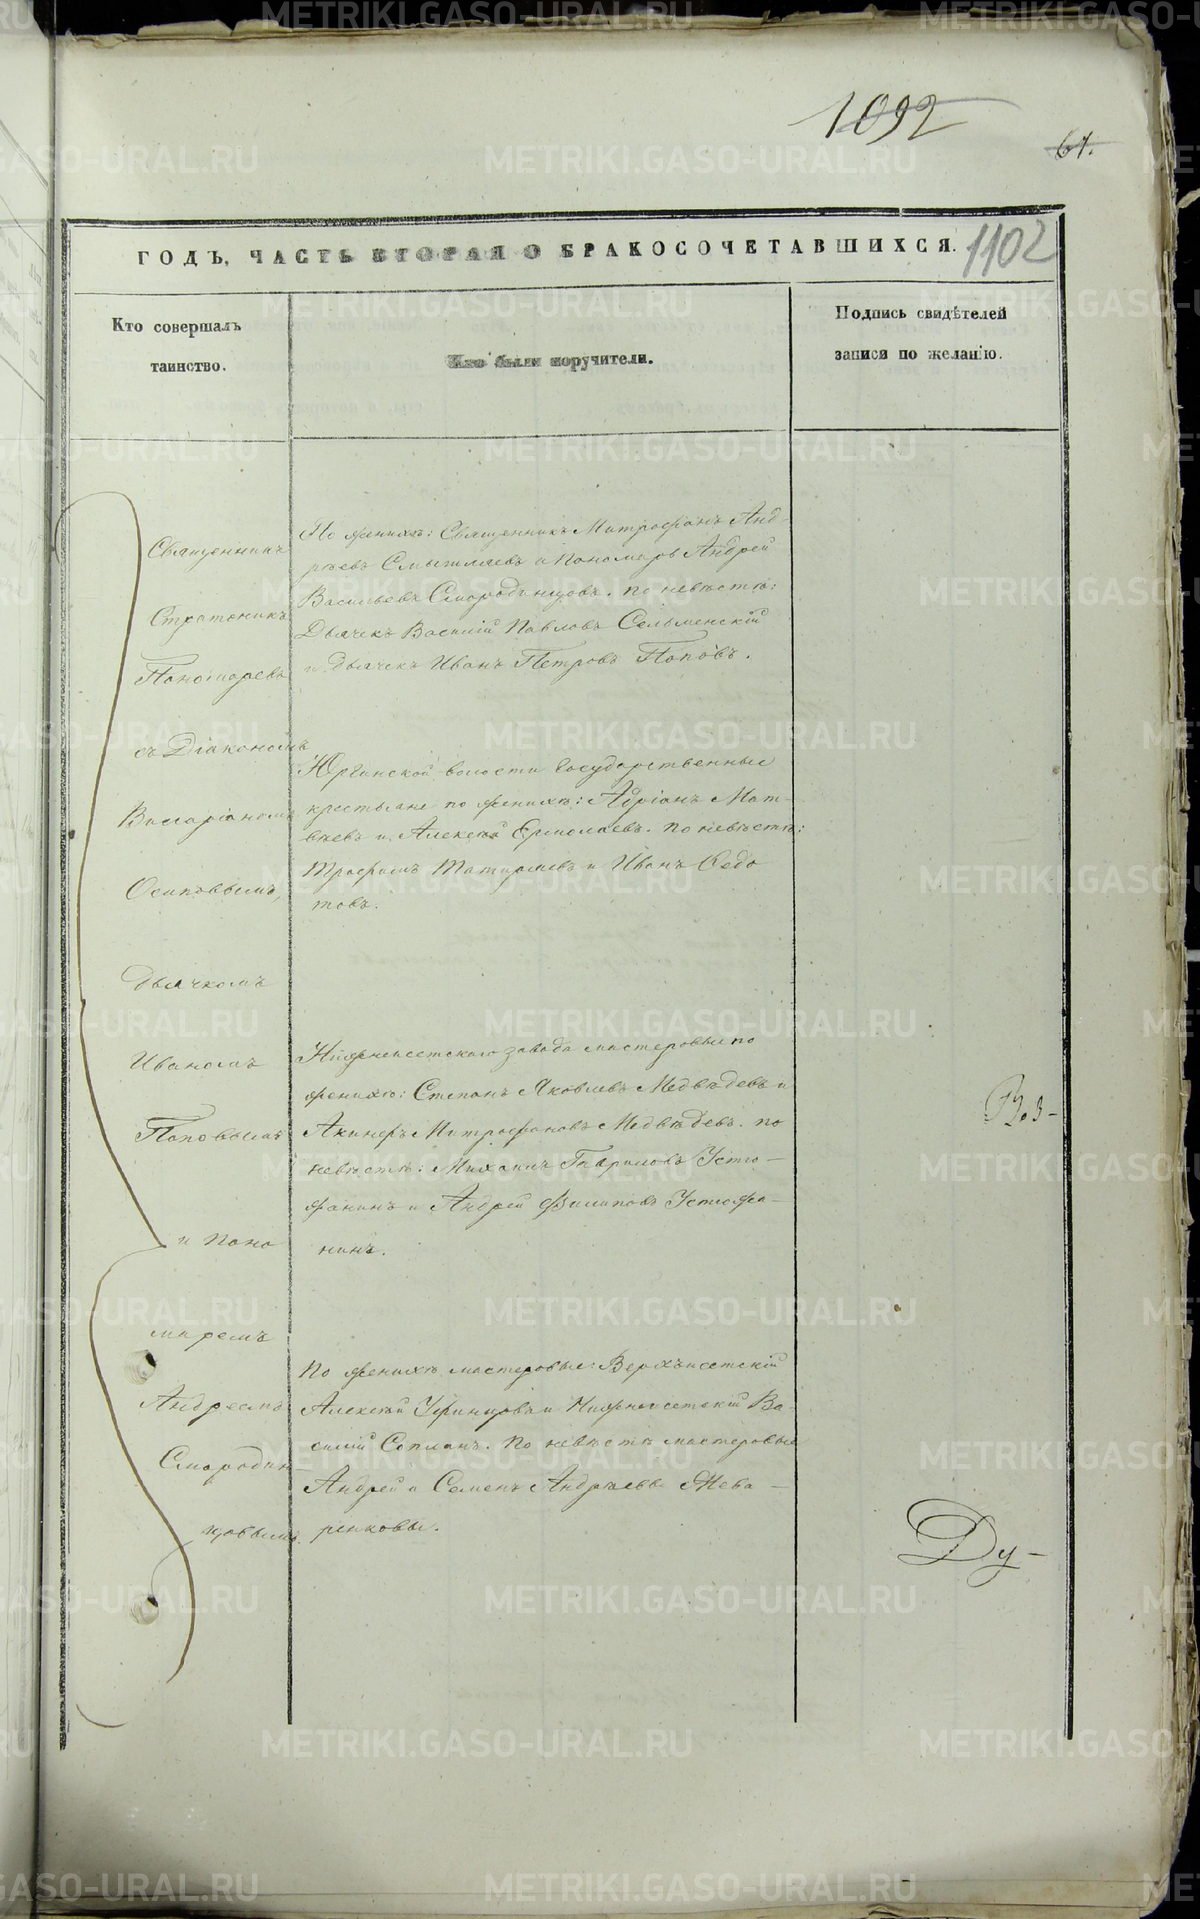 1092
61.
1102
ГОДЪ, ЧАСТЬ ВТОРАЯ О БРАКОСОЧЕТАВШИХСЯ.
Кто совершалъ
таинство.
Кто были поручители.
Подпись свидѣтелей
записи по желанію.
Священникъ
Стратоникъ
Пономаревъ
съ Діакономъ
Виссаріономъ
Осиповымъ,
Дьячкомъ
Иваномъ
Поповымъ
и Поно
маремъ
Андреемъ
Смородин-
цовымъ.
По женихѣ: Священникъ Митрофанъ Анд
рѣевъ Смышляевъ и Пономарь Андрей
Васильевъ Смородинцовъ. по невѣстѣ:
Дьячекъ Василій Павловъ Сельменскій
и дьячекъ Иванъ Петровъ Поповъ.
Юргинской волости Государственные
крестьяне по женихѣ: Адріанъ Мат-
вѣевъ и Алексѣй Ермолаевъ. по невѣстѣ:
Трофимъ и Иванъ Федо
товъ.
Нижнеисетскаго завода мастеровые по
женихѣ: Степанъ Яковлевъ Медвѣдевъ и
Митрофановъ Медвѣдевъ. по
невѣстѣ: Михаилъ Гавриловъ Устю-
жанинъ и Андрей Филиповъ Устюжа-
нинъ.
По женихѣ мастеровые: Верхъисетскій
Алексѣй и Нижнеисетскій Ва-
силій. По невѣстѣ мастеровые
Андрей и Семенъ Андрѣевы Жева-
ренковы.
Воз-
Ду-
METRIKI.GASO-URAL.RU